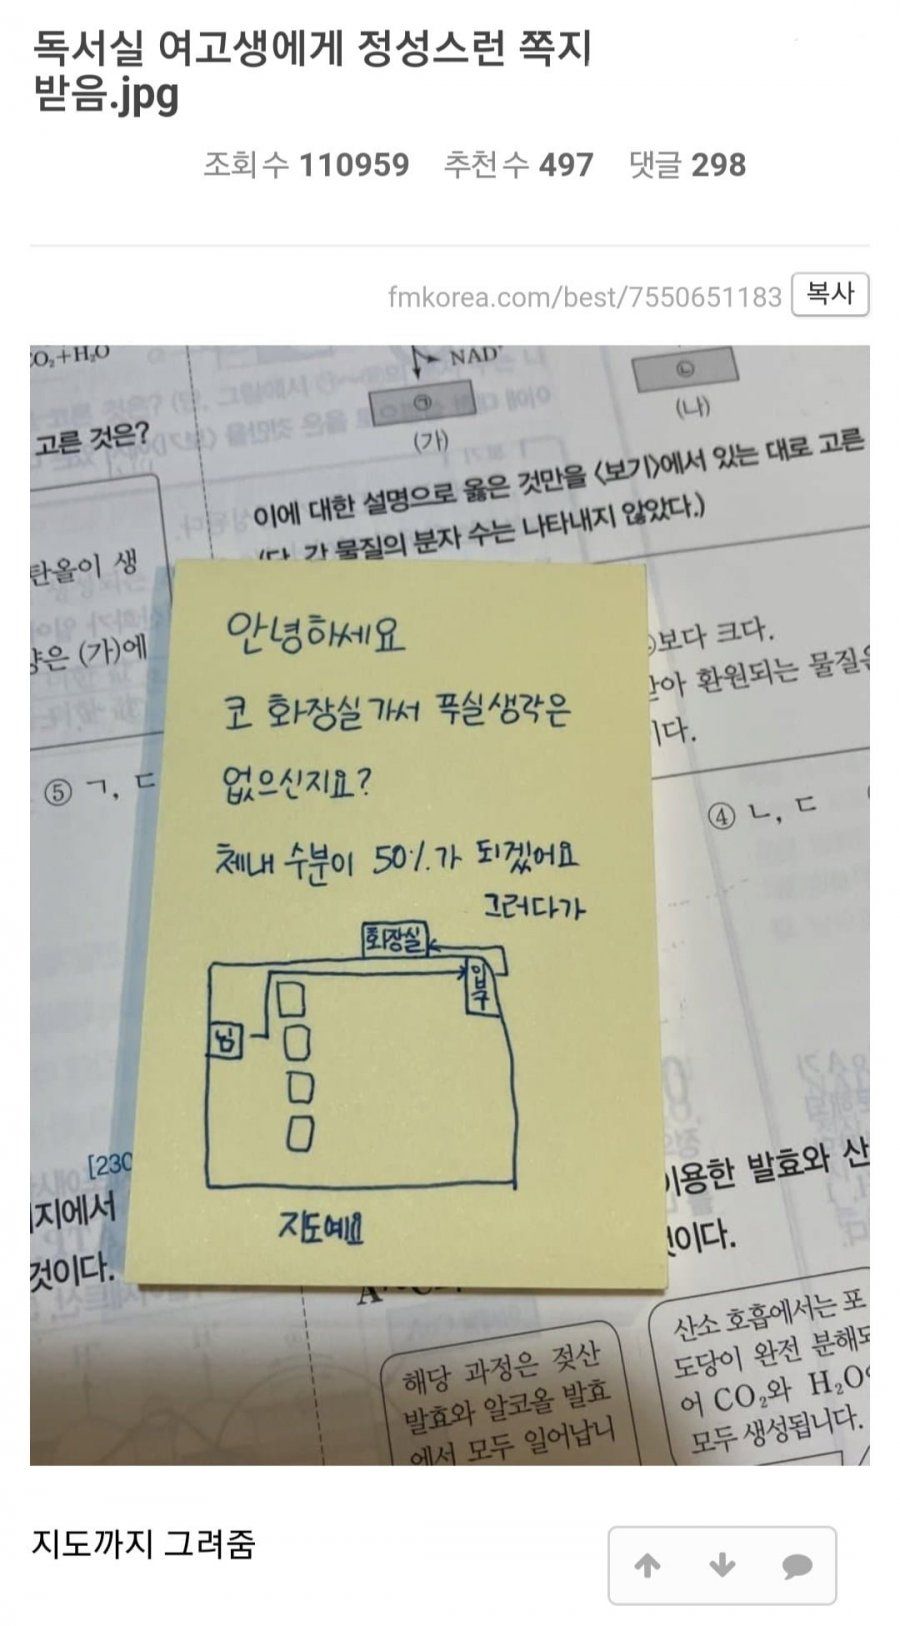 독서실 여고생에게 정성스런 쪽지
받음.jpg
조회 수 110959 추천 수 497 댓글 298
fmkorea.com/best/7550651183 복사
CO₂+H₂O
NAD⁺
㉠
㉡
(가)
(나)
고른 것은?
이에 대한 설명으로 옳은 것만을 <보기>에서 있는 대로 고른
(단, 각 물질의 분자 수는 나타내지 않았다.)
탄올이 생
은 (가)에
보다 크다.
아 환원되는 물질은
이다.
⑤ ㄱ, ㄷ
④ ㄴ, ㄷ
안녕하세요
코 화장실가서 푸실생각은
없으신지요?
체내 수분이 50%가 되겠어요
그러다가
화장실
입구
님
지도예요
[230
지에서
것이다.
이용한 발효와 산
것이다.
해당 과정은 젖산
발효와 알코올 발효
에서 모두 일어납니
산소 호흡에서는 포
도당이 완전 분해되
어 CO₂와 H₂O
모두 생성됩니다.
지도까지 그려줌